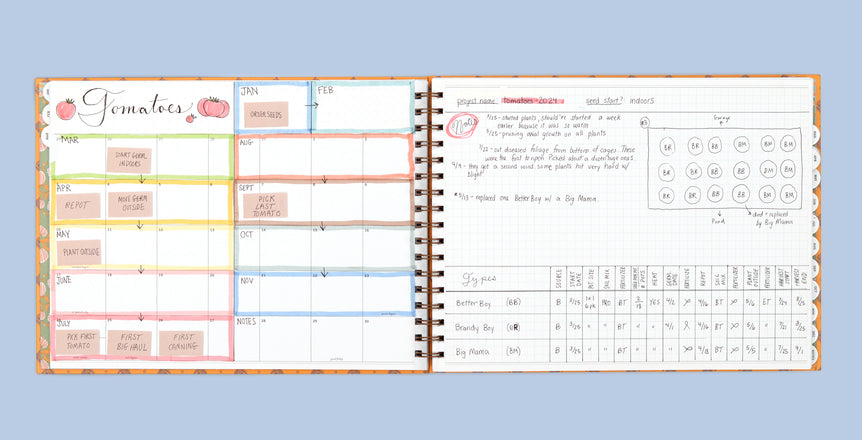 Tomatoes
JAN
ORDER SEEDS
FEB
MAR
START GERM INDOORS
AUG
APR
REPOT
MOVE GERM OUTSIDE
SEPT
PICK LAST TOMATO
MAY
PLANT OUTSIDE
OCT
JUNE
NOV
JULY
PICK FIRST TOMATO
FIRST BIG HAUL
FIRST CANNING
NOTES
project name: tomatoes 2024 seed start? indoors
Notes
3/25 - started plants, should've started a week
earlier because it was so warm
5/25 - pruning axial growth on all plants
7/22 - cut diseased foliage from bottom of cages. These
were the first to ripen. Picked about a dozen
- they got a second wind some plants hit very hard w/
blight
*5/13 - replaced one Better Boy w/ a Big Mama.
#3
Garage
BR BR BB BM BM BM
BR BR BB BB BM BM
BR BR BB BB BM BM
Pond
died - replaced
by Big Mama
Types
SOURCE
START DATE
SOIL MIX
FERTILIZER
HEAT
GERM DATE
FERTILIZE
REPOT
SOIL MIX
FERTILIZER
PLANT OUTSIDE
FERTILIZER
HARVEST START
HARVEST END
Better Boy (BB) B 3/25 PRO BT YES 4/2 4/16 BT 5/6 ET
Brandy Boy (BR) B 3/25 " " BT " " 4/1 4/16 BT 5/6 "
Big Mama (BM) B 3/25 " " BT " " 4/18 BT 5/5 " 7/25 9/1